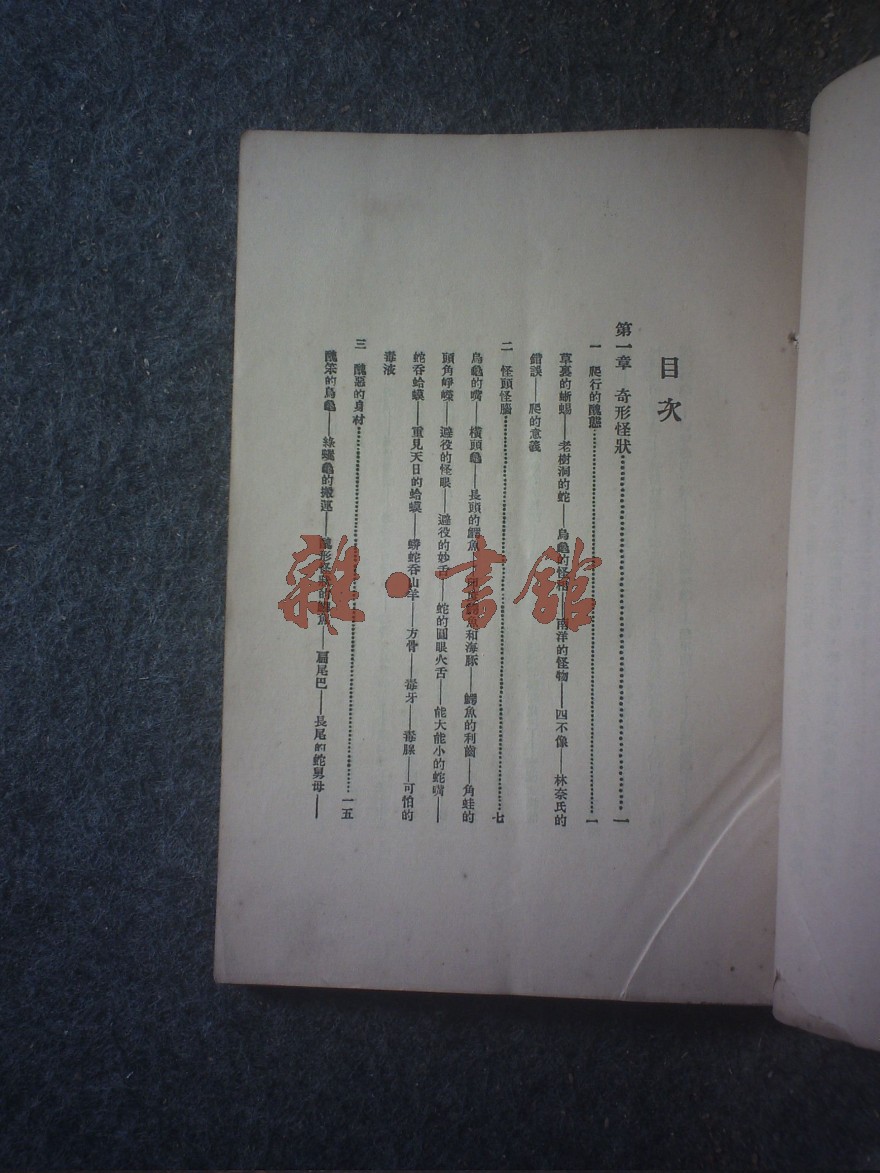 目次
第一章 奇形怪狀⋯⋯一
一 爬行的醜態⋯⋯一
草裏的蜥蜴——老樹洞的蛇——烏龜的怪相——南洋的怪物——四不像——林奈氏的
錯誤——爬的意義
二 怪頭怪腦⋯⋯七
烏龜的嘴——橫頭龜——長頭的鱷魚——鱷魚和海豚——鱷魚的利齒——角蛙的
頭角崢嶸——避役的怪眼——避役的妙舌——蛇的圓眼火舌——能大能小的蛇嘴——
蛇吞蛤蟆——重見天日的蛤蟆——蟒蛇吞山羊——方骨——毒牙——毒腺——可怕的
毒液
三 醜惡的身材⋯⋯一五
醜笨的烏龜——綠蠵龜的搬運——醜形怪狀的鱷魚——扁尾巴——長尾的蛇舅母——
雜·書館